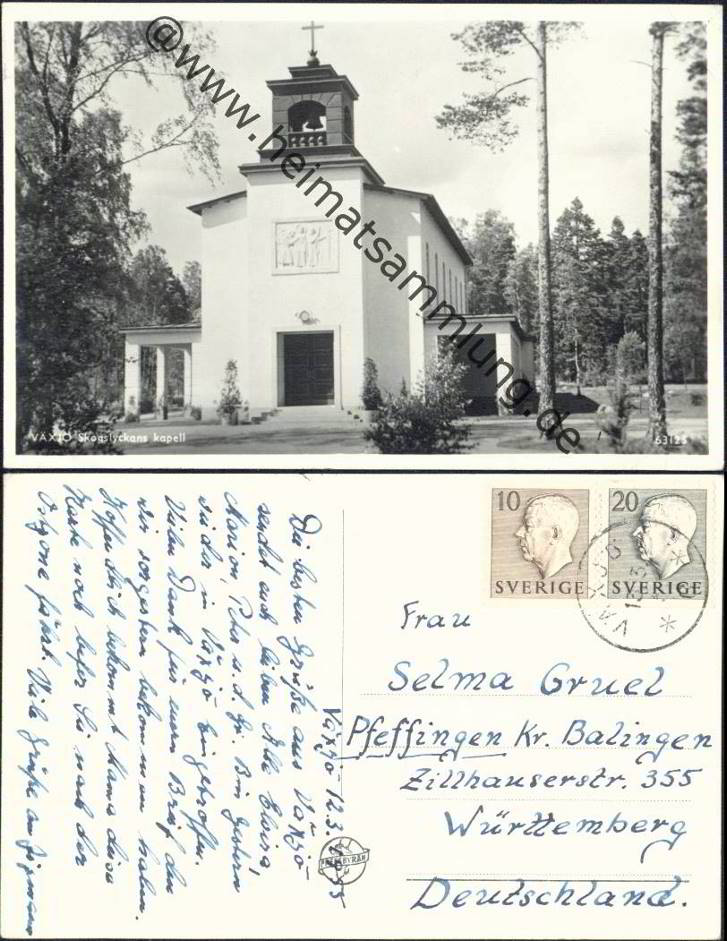 @www.heimatsammlung.de
VÄXJÖ Skogslyckans kapell
63125
Växjö 12.3.
Die besten Grüße aus Växjö
sendet euch lieben Alle Elvira,
Marion, Peter u. d. Bin gestern
wieder in Växjö eingetroffen.
Vielen Dank für euren Brief den
wir vorgestern bekommen haben.
Hoffendlich bekommt Mama diese
Karte noch bevor Sie nach der
fährt. Viele Grüße an
10
SVERIGE
20
SVERIGE
VÄXJÖ
Frau
Selma Gruel
Pfeffingen Kr. Balingen
Zillhauserstr. 355
Württemberg
Deutschland.